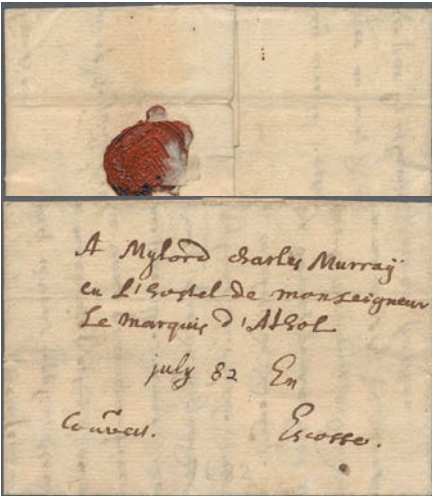 A Mylord charles Murraÿ
en L'hostel de monseigneur
Le marquis d'Athol
july 82 En
Escosse.
1682